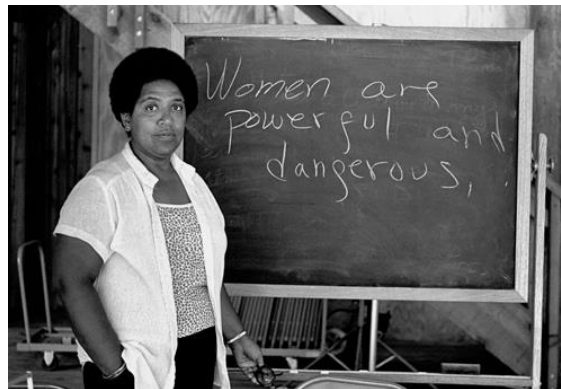 Women are
powerful and
dangerous,